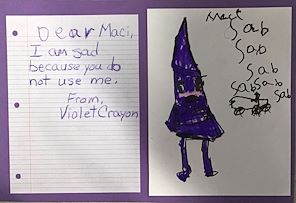 Dear Maci,
I am sad
because you do
not use me.
From,
Violet Crayon
Maci
Sab
Sab
Sab
Sab Sab
Sab